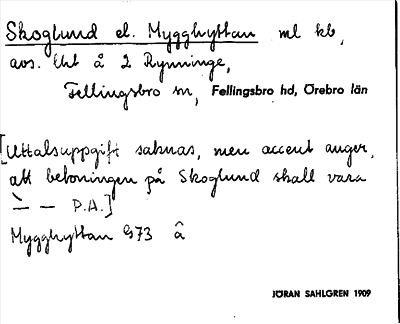 Skoglund el. Mygghyttan ml kb,
avs. lht å 2 Rynninge,
Fellingsbro sn, Fellingsbro hd, Örebro län
[Uttalsuppgift saknas, men accent anger,
att betoningen på Skoglund skall vara
– – P.A.]
Mygghyttan G73 â
JÖRAN SAHLGREN 1909